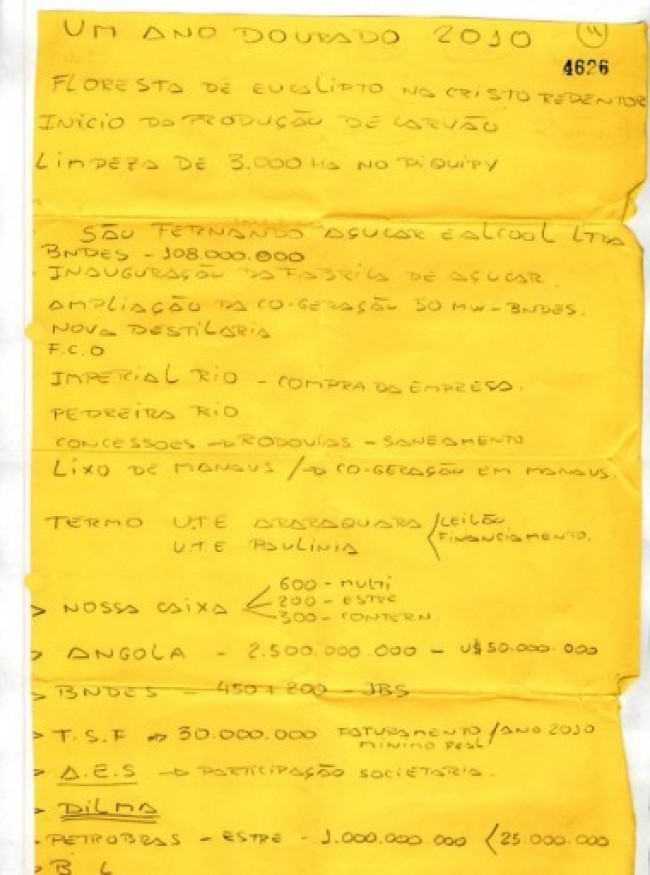 UM ANO DOURADO 2010
4626
FLORESTA DE EUCALIPTO NA CRISTO REDENTOR
INÍCIO DA PRODUÇÃO DE CARVÃO
LIMPEZA DE 3.000 HA NO PIQUIRY
SÃO FERNANDO AÇUCAR E ALCOOL LTDA
BNDES - 108.000.000
INAUGURAÇÃO DA FABRICA DE AÇUCAR.
AMPLIAÇÃO DA CO-GERAÇÃO 50 MW - BNDES.
NOVA DESTILARIA
F.C.O
IMPERIAL RIO - COMPRA DA EMPRESA.
PEDREIRA RIO
CONCESSOES → RODOVIAS - SANEAMENTO
LIXO DE MANAUS / → CO-GERAÇÃO EM MANAUS
TERMO U.T.E ARARAQUARA / LEILÃO
U.T.E PAULÍNIA \ FINANCIAMENTO.
600 - MULTI
> NOSSA CAIXA < 200 - ESTRE
300 - CONTERN
> ANGOLA - 2.500.000.000 - U$ 50.000.000
> BNDES - 450 + 200 - JBS
> T.S.F → 30.000.000 FATURAMENTO / ANO 2010
MINIMO
> A.E.S → PARTICIPAÇÃO SOCIETARIA.
> DILMA
PETROBRAS - ESTRE - 1.000.000.000 < 25.000.000